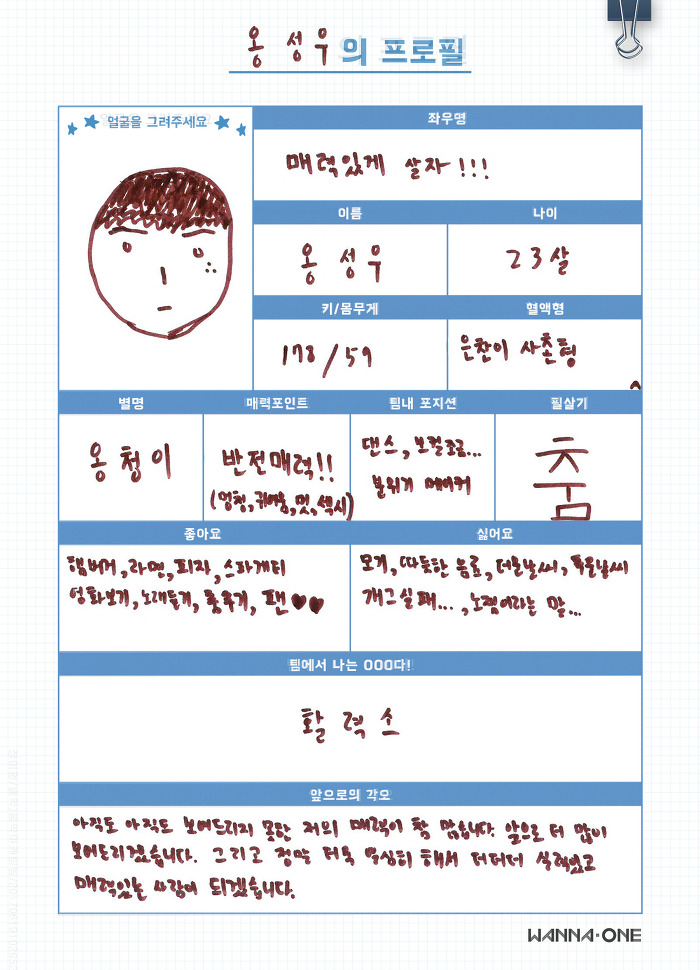 옹 성우의 프로필
얼굴을 그려주세요
좌우명
매력있게 살자!!!
이름
나이
옹 성우
23살
키/몸무게
혈액형
178/59
은찬이 사촌형
별명
매력포인트
팀내 포지션
필살기
옹청이
반전매력!!
(멍청,귀여움,멋,섹시)
댄스, 보컬조금...
분위기 메이커
춤
좋아요
싫어요
햄버거, 라면, 피자, 스파게티
영화보기, 노래듣기, 춤추기, 팬♥♥
모기, 따듯한 음료, 더운날씨, 추운날씨
개그실패..., 노잼이라는 말...
팀에서 나는 OOO다!
활력소
앞으로의 각오
아직도 아직도 보여드리지 못한 저의 매력이 참 많습니다. 앞으로 더 많이
보여드리겠습니다. 그리고 정말 더욱 열심히 해서 더더더 실력있고
매력있는 사람이 되겠습니다.
WANNA·ONE